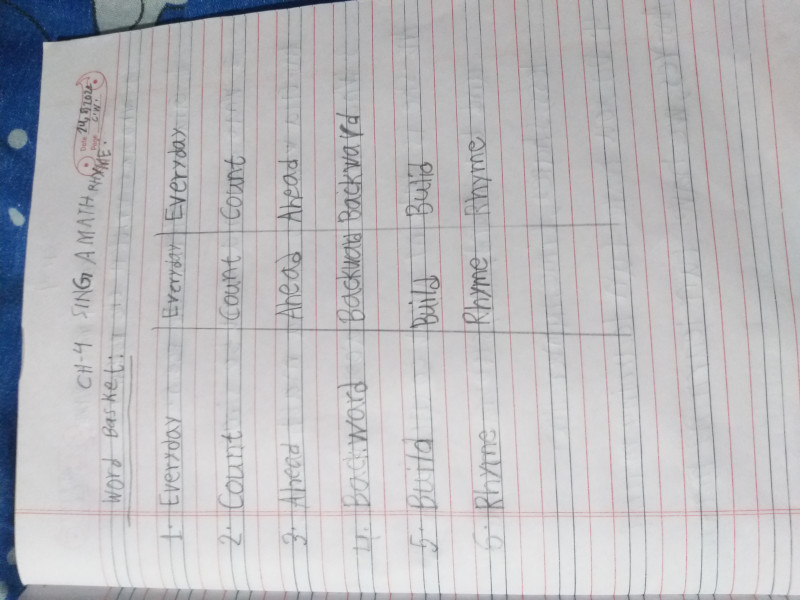 Date 24.8.2024
Page C.W.
CH-4 SING A MATH RHYME.
Word Basket:
1. Everyday Everyday Everyday
2. Count Count Count
3. Ahead Ahead Ahead
4. Backward Backward Backward
5. Build Build Build
6. Rhyme Rhyme Rhyme